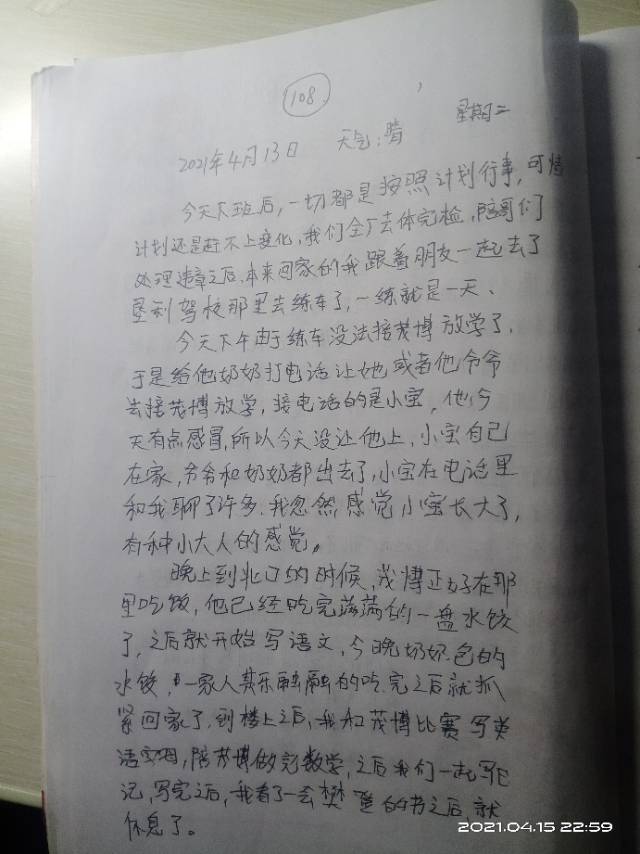 108.
2021年4月13日 天气:晴 星期二
今天下班后,一切都是按照计划行事,可惜
计划还是赶不上变化,我们全厂去体完检,陪哥们
处理违章之后,本来回家的我跟着朋友一起去了
垦利驾校那里去练车了,一练就是一天、
今天下午由于练车没法接茂博放学了,
于是给他奶奶打电话让她或者他爷爷
去接茂博放学,接电话的是小宝,他今
天有点感冒,所以今天没让他上,小宝自己
在家,爷爷和奶奶都出去了,小宝在电话里
和我聊了许多.我忽然感觉小宝长大了,
有种小大人的感觉。
晚上到北辽的时候,茂博正好在那
里吃饭,他已经吃完满满的一盘水饺
了,之后就开始写语文,今晚奶奶包的
水饺,一家人其乐融融的吃.完之后就抓
紧回家了.到楼上之后,我和茂博比赛写英
语字母,陪茂博做完数学,之后我们一起写日
记,写完之后,我看了一会樊登的书之后就
休息了。
2021.04.15 22:59